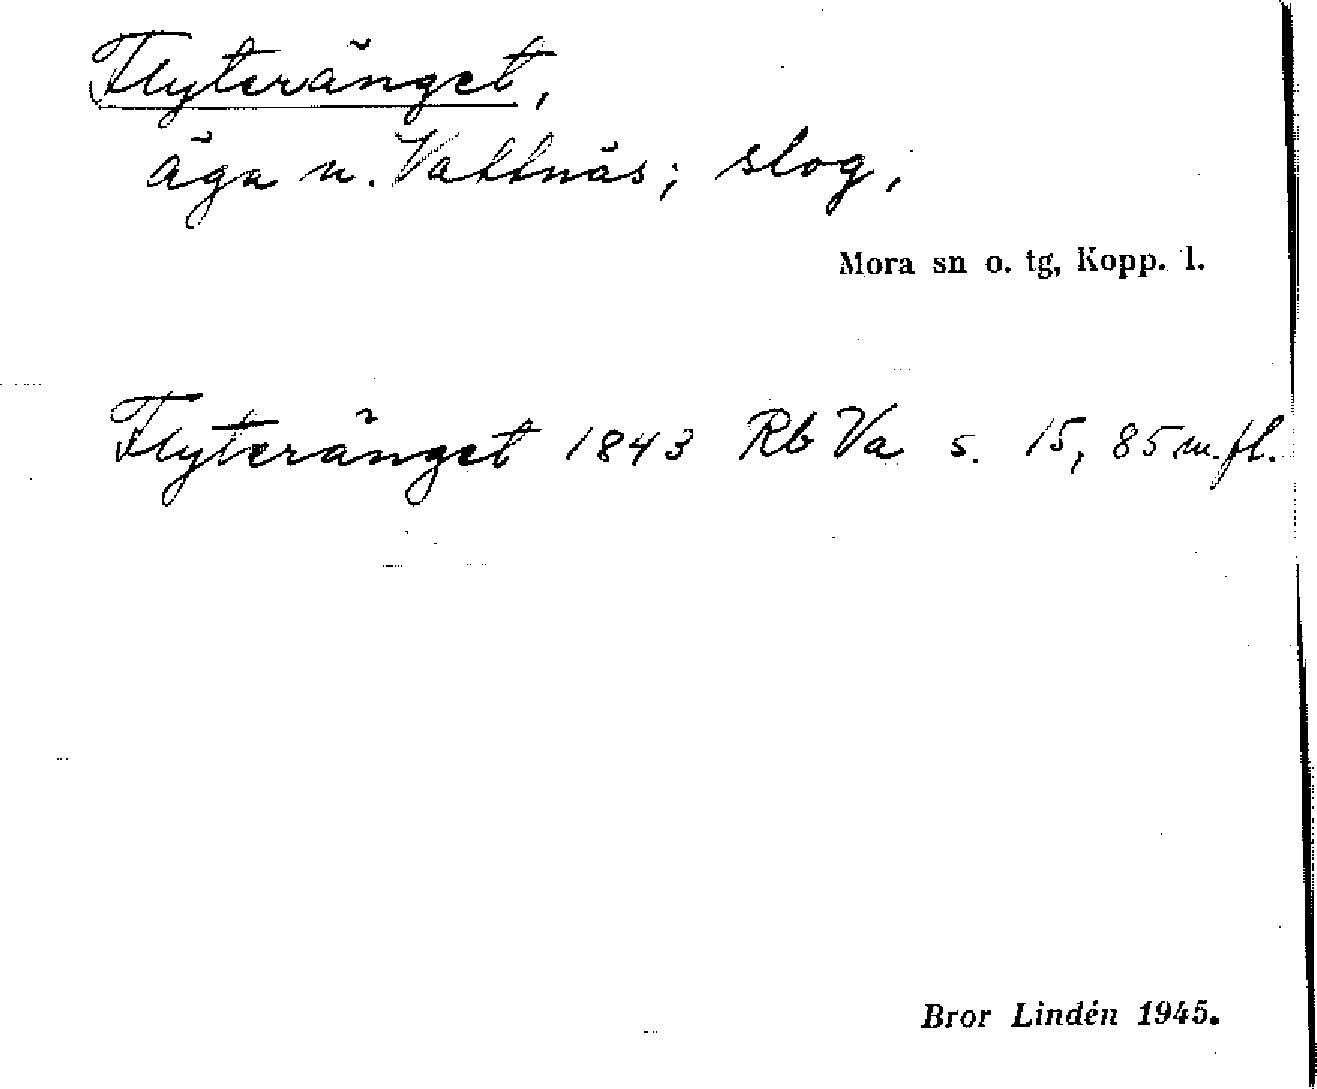 Flyteränget,
äga u. Vattnäs; slog,
Mora sn o. tg, Kopp. l.
Flyteränget 1843 Rb Va s. 15, 85 m. fl.
Bror Lindén 1945.